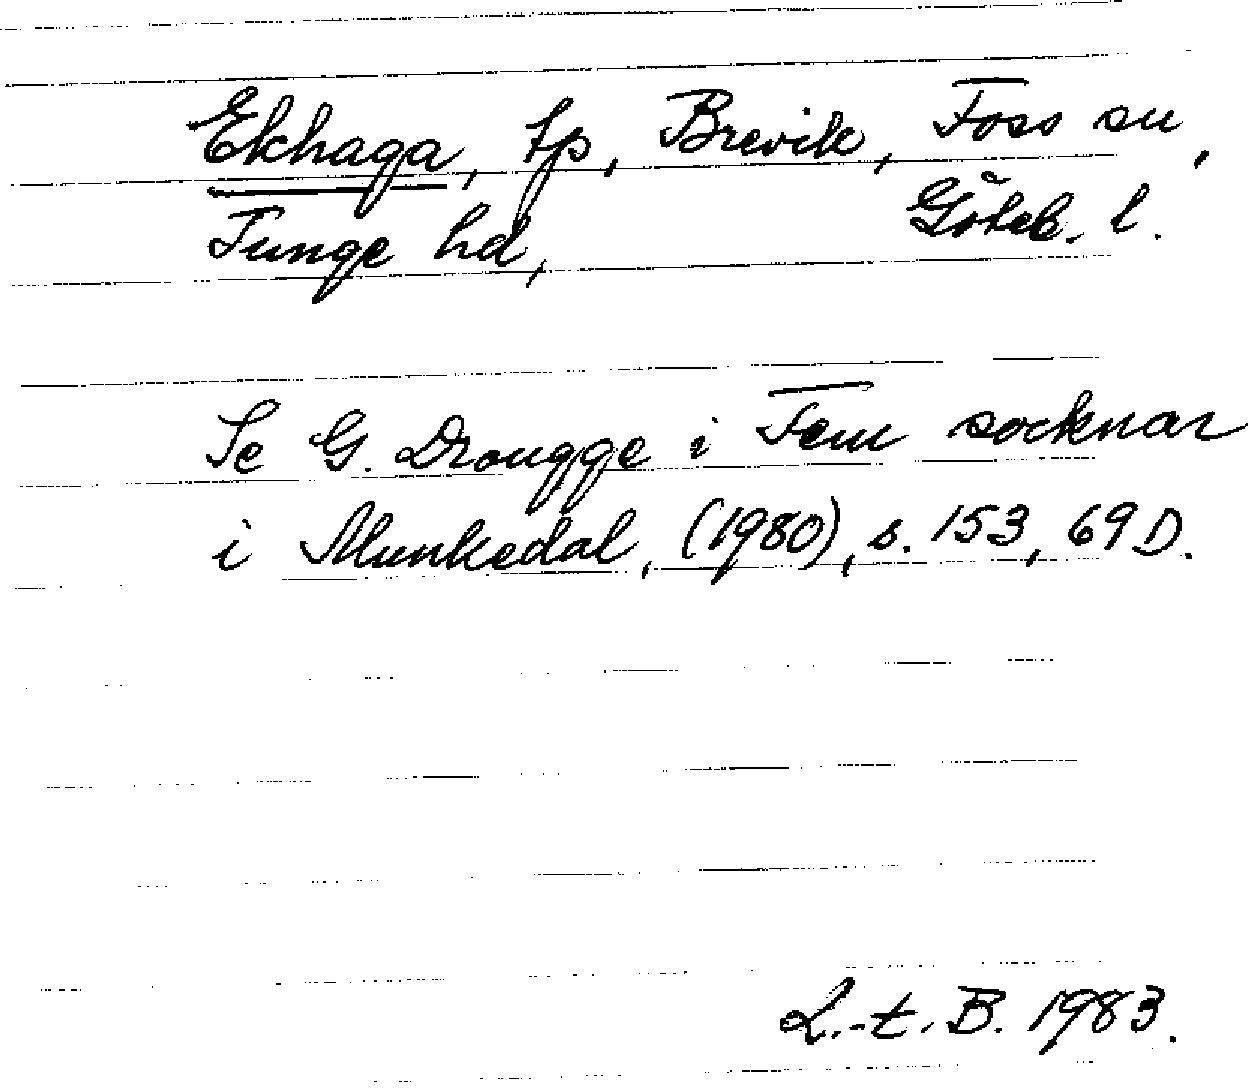 Ekhaga, tp, Brevik, Foss sn,
Tunge hd, Göteb. l.
Se G. Drougge i Fem socknar
i Munkedal, (1980), s. 153, 69 D.
L.-t. B. 1983.